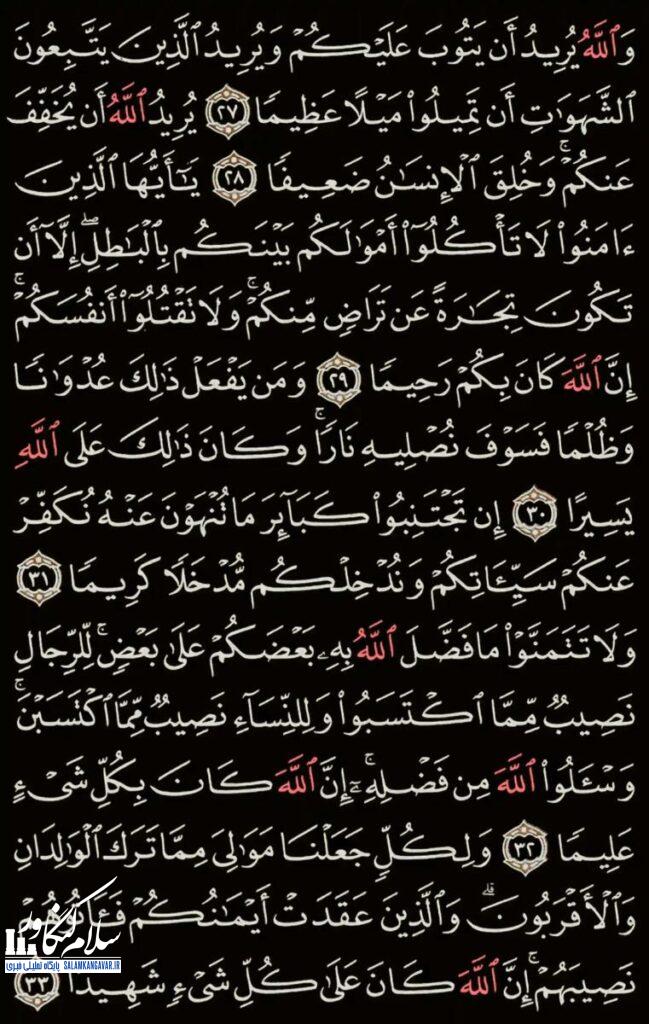 وَٱللَّهُ يُرِيدُ أَن يَتُوبَ عَلَيْكُمْ وَيُرِيدُ ٱلَّذِينَ يَتَّبِعُونَ
ٱلشَّهَوَٰتِ أَن تَمِيلُوا۟ مَيْلًا عَظِيمًا ٢٧ يُرِيدُ ٱللَّهُ أَن يُخَفِّفَ
عَنكُمْ ۚ وَخُلِقَ ٱلْإِنسَٰنُ ضَعِيفًا ٢٨ يَٰٓأَيُّهَا ٱلَّذِينَ
ءَامَنُوا۟ لَا تَأْكُلُوٓا۟ أَمْوَٰلَكُم بَيْنَكُم بِٱلْبَٰطِلِ إِلَّآ أَن
تَكُونَ تِجَٰرَةً عَن تَرَاضٍ مِّنكُمْ ۚ وَلَا تَقْتُلُوٓا۟ أَنفُسَكُمْ ۚ
إِنَّ ٱللَّهَ كَانَ بِكُمْ رَحِيمًا ٢٩ وَمَن يَفْعَلْ ذَٰلِكَ عُدْوَٰنًا
وَظُلْمًا فَسَوْفَ نُصْلِيهِ نَارًا ۚ وَكَانَ ذَٰلِكَ عَلَى ٱللَّهِ
يَسِيرًا ٣٠ إِن تَجْتَنِبُوا۟ كَبَآئِرَ مَا تُنْهَوْنَ عَنْهُ نُكَفِّرْ
عَنكُمْ سَيِّـَٔاتِكُمْ وَنُدْخِلْكُم مُّدْخَلًا كَرِيمًا ٣١
وَلَا تَتَمَنَّوْا۟ مَا فَضَّلَ ٱللَّهُ بِهِۦ بَعْضَكُمْ عَلَىٰ بَعْضٍ ۚ لِّلرِّجَالِ
نَصِيبٌ مِّمَّا ٱكْتَسَبُوا۟ وَلِلنِّسَآءِ نَصِيبٌ مِّمَّا ٱكْتَسَبْنَ ۚ
وَسْـَٔلُوا۟ ٱللَّهَ مِن فَضْلِهِۦٓ ۚ إِنَّ ٱللَّهَ كَانَ بِكُلِّ شَىْءٍ
عَلِيمًا ٣٢ وَلِكُلٍّ جَعَلْنَا مَوَٰلِىَ مِمَّا تَرَكَ ٱلْوَٰلِدَانِ
وَٱلْأَقْرَبُونَ ۚ وَٱلَّذِينَ عَقَدَتْ أَيْمَٰنُكُمْ فَـَٔاتُوهُمْ
نَصِيبَهُمْ ۚ إِنَّ ٱللَّهَ كَانَ عَلَىٰ كُلِّ شَىْءٍ شَهِيدًا ٣٣
سلام کنگاور
پایگاه تحلیلی خبری SALAMKANGAVAR.IR